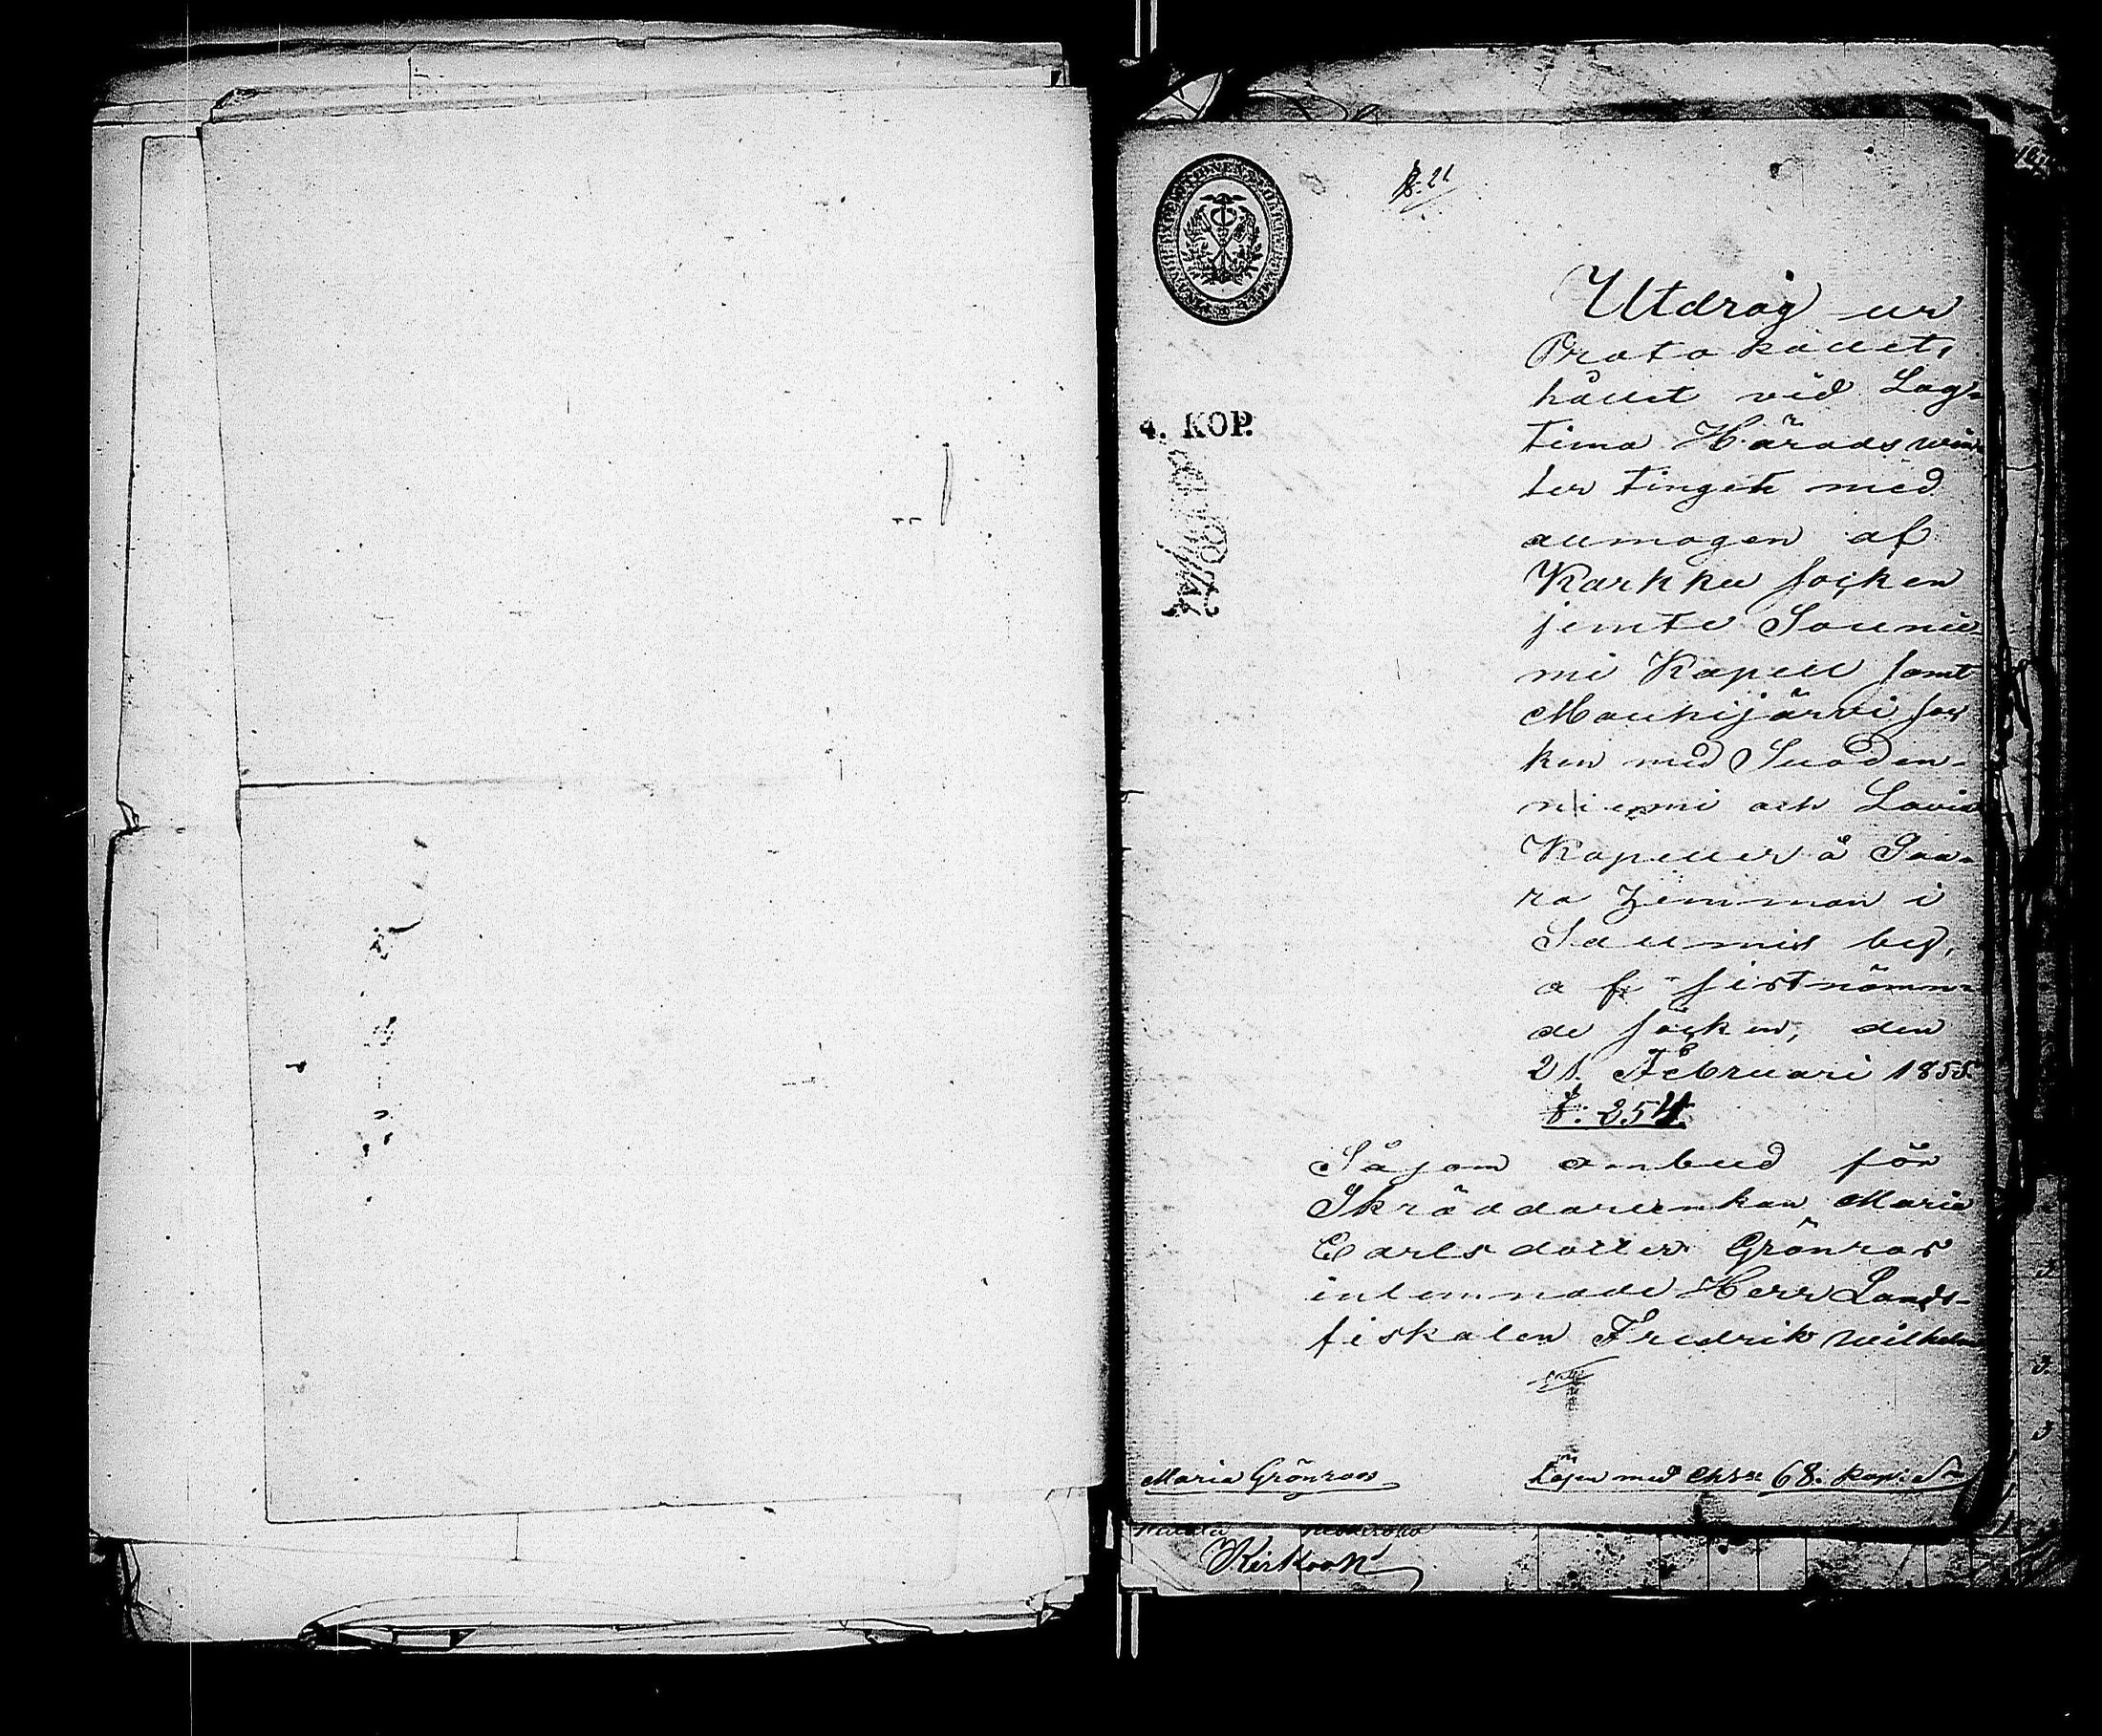 §. 21
Utdrag ur
Protokollet,
hållet vid Lag-
tima Härads win-
ter tinget med
allmogen af
Karkku socken
jemte Saunie-
mi Kapell samt
Mouhijärvi soc
ken med Suoden-
niemi och Lavia
Kapeller å Saa-
ra hemman i
Salmis by,
af sistnämn-
de socken, den
21. Februari 1855.
§: 254.
Såsom ombud för
Skräddareenkan Maria
Carlsdotter Grönroos
inlemnade Herr Lands-
fiskalen Fredrik Wilhelm
4. KOP.
Maria Grönroos
Lösen med 68. kop: S
Kirkvok